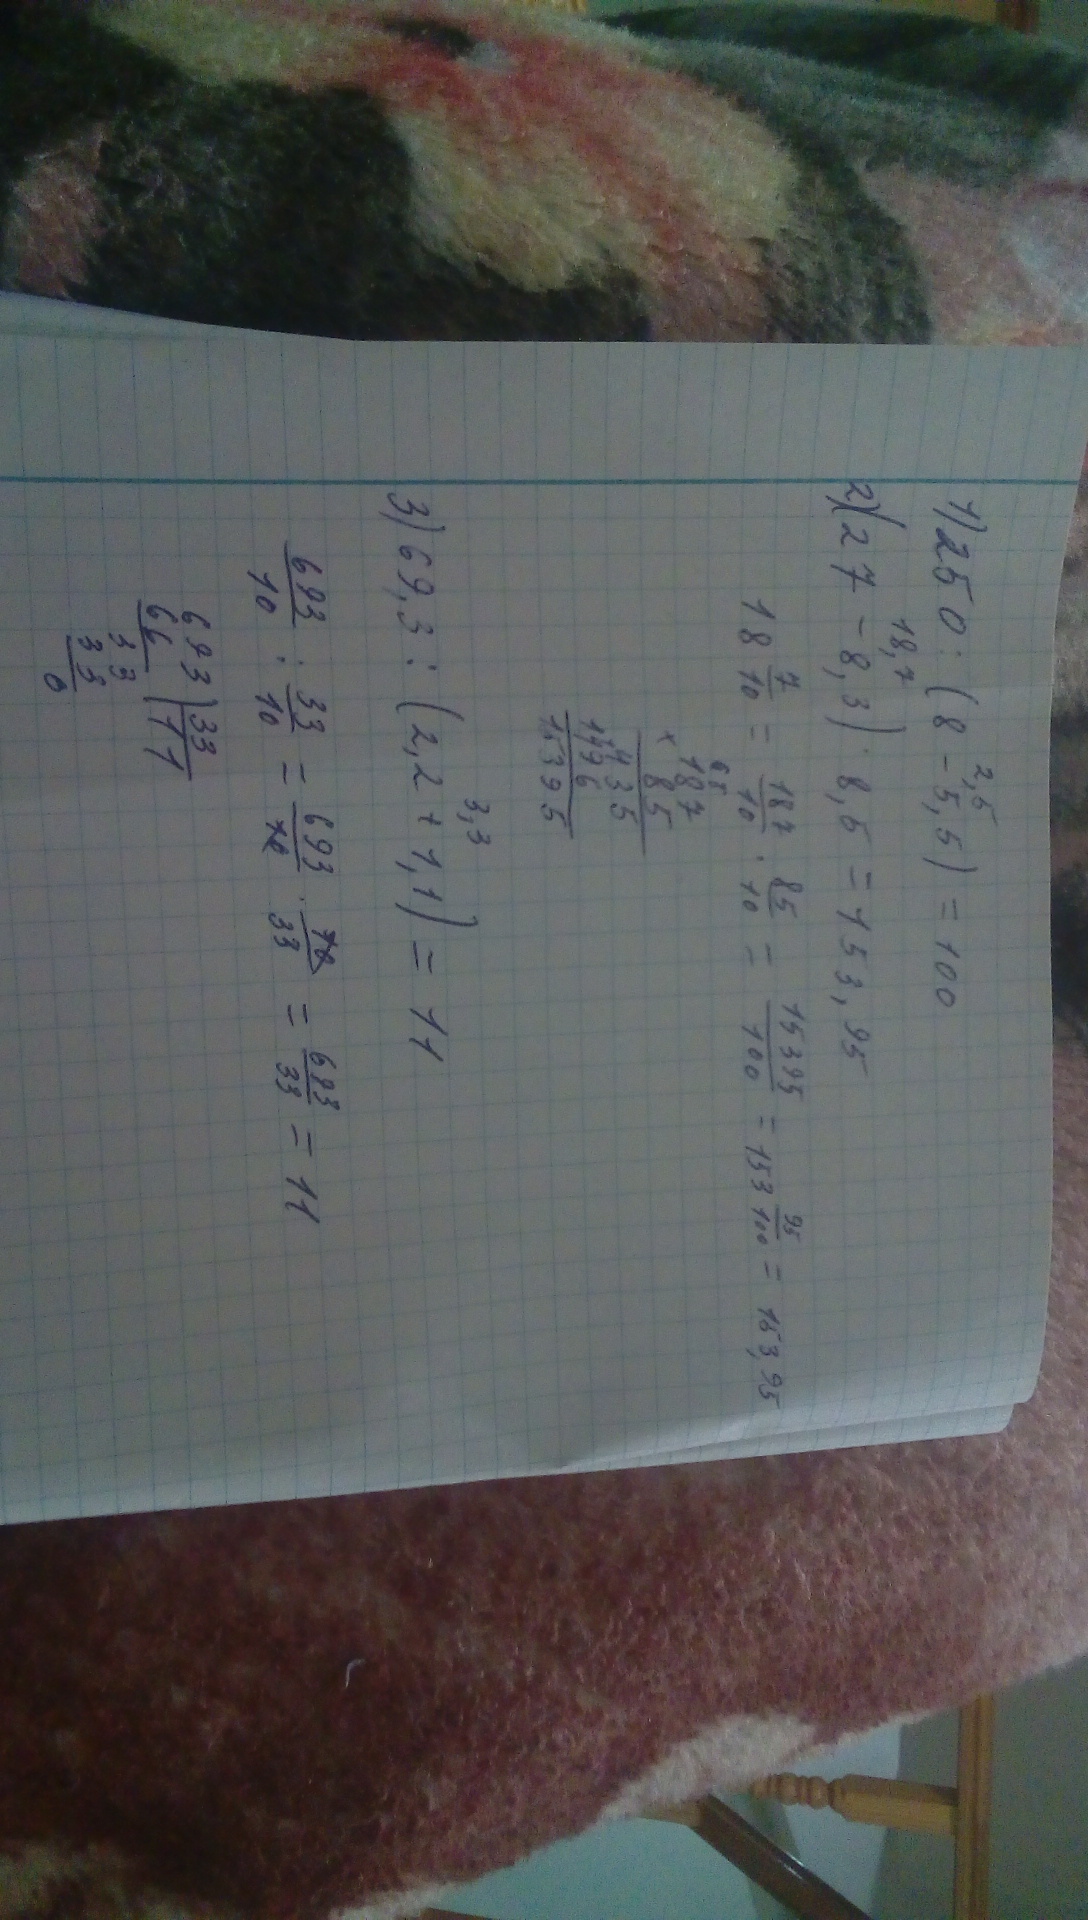 2,5
1) 250 : (8 - 5,5) = 100
18,7
2) (27 - 8,3) · 8,5 = 153,95
18 7/10 = 187/10 · 85/10 = 15395/100 = 153 95/100 = 153,95
65
187
× 85
435
1496
15395
3,3
3) 69,3 : (2,2 + 1,1) = 11
693/10 : 33/10 = 693/10 · 10/33 = 693/33 = 11
693 | 33
66 | 11
33
33
0